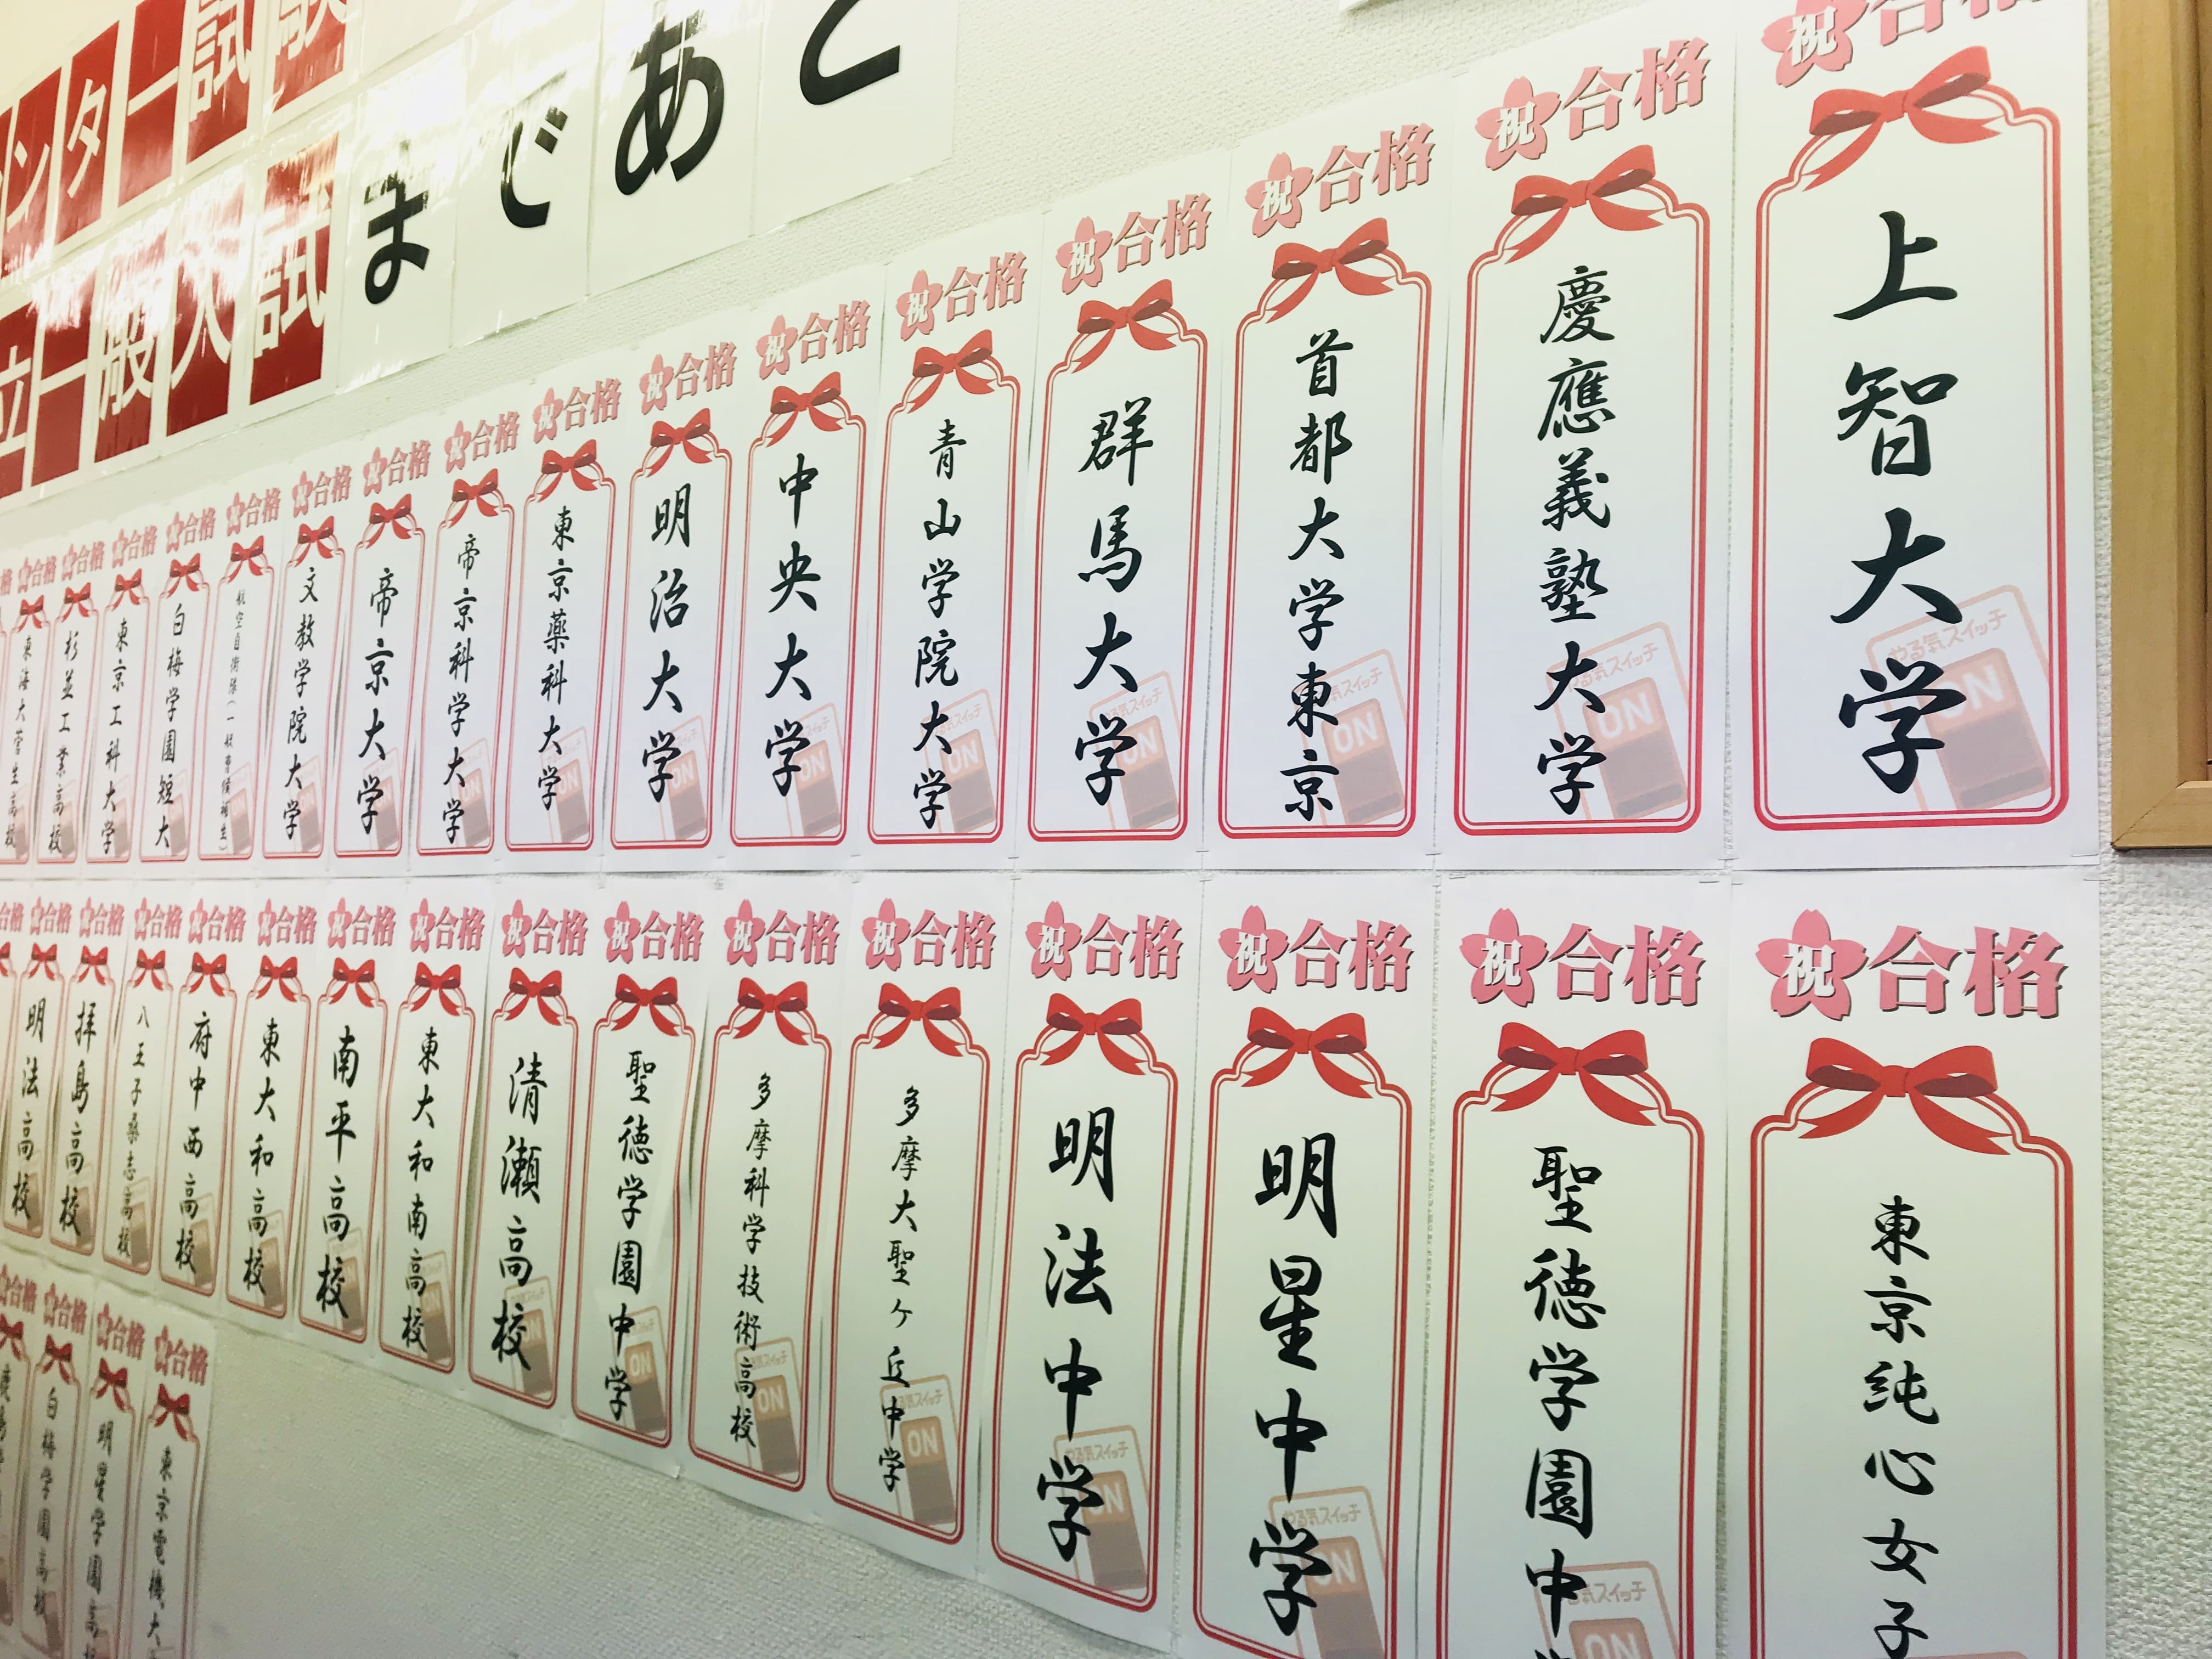 ンター試験
立一般入試
まであと
祝合格
上智大学
やる気スイッチ
ON
祝合格
慶應義塾大学
やる気スイッチ
ON
祝合格
首都大学東京
気スイッチ
ON
祝合格
群馬大学
ON
祝合格
青山学院大学
ON
祝合格
中央大学
ON
祝合格
明治大学
祝合格
東京薬科大学
祝合格
帝京科学大学
祝合格
帝京大学
祝合格
文教学院大学
祝合格
航空自衛隊(一般曹候補生)
祝合格
白梅学園短大
祝合格
東京工科大学
祝合格
杉並工業高校
祝合格
東海大菅生高校
格
祝合格
東京純心女子
祝合格
聖徳学園中
気スイッチ
ON
祝合格
明星中学
やる気スイッチ
ON
祝合格
明法中学
やる気スイッチ
ON
祝合格
多摩大聖ヶ丘中学
る気スイッチ
ON
祝合格
多摩科学技術高校
気スイッチ
ON
祝合格
聖徳学園中学
ON
祝合格
清瀬高校
祝合格
東大和南高校
祝合格
南平高校
祝合格
東大和高校
祝合格
府中西高校
祝合格
八王子桑志高校
祝合格
拝島高校
祝合格
明法高校
合格
祝合格
東京電機大
祝合格
明星学園高
祝合格
白梅学園高校
合格